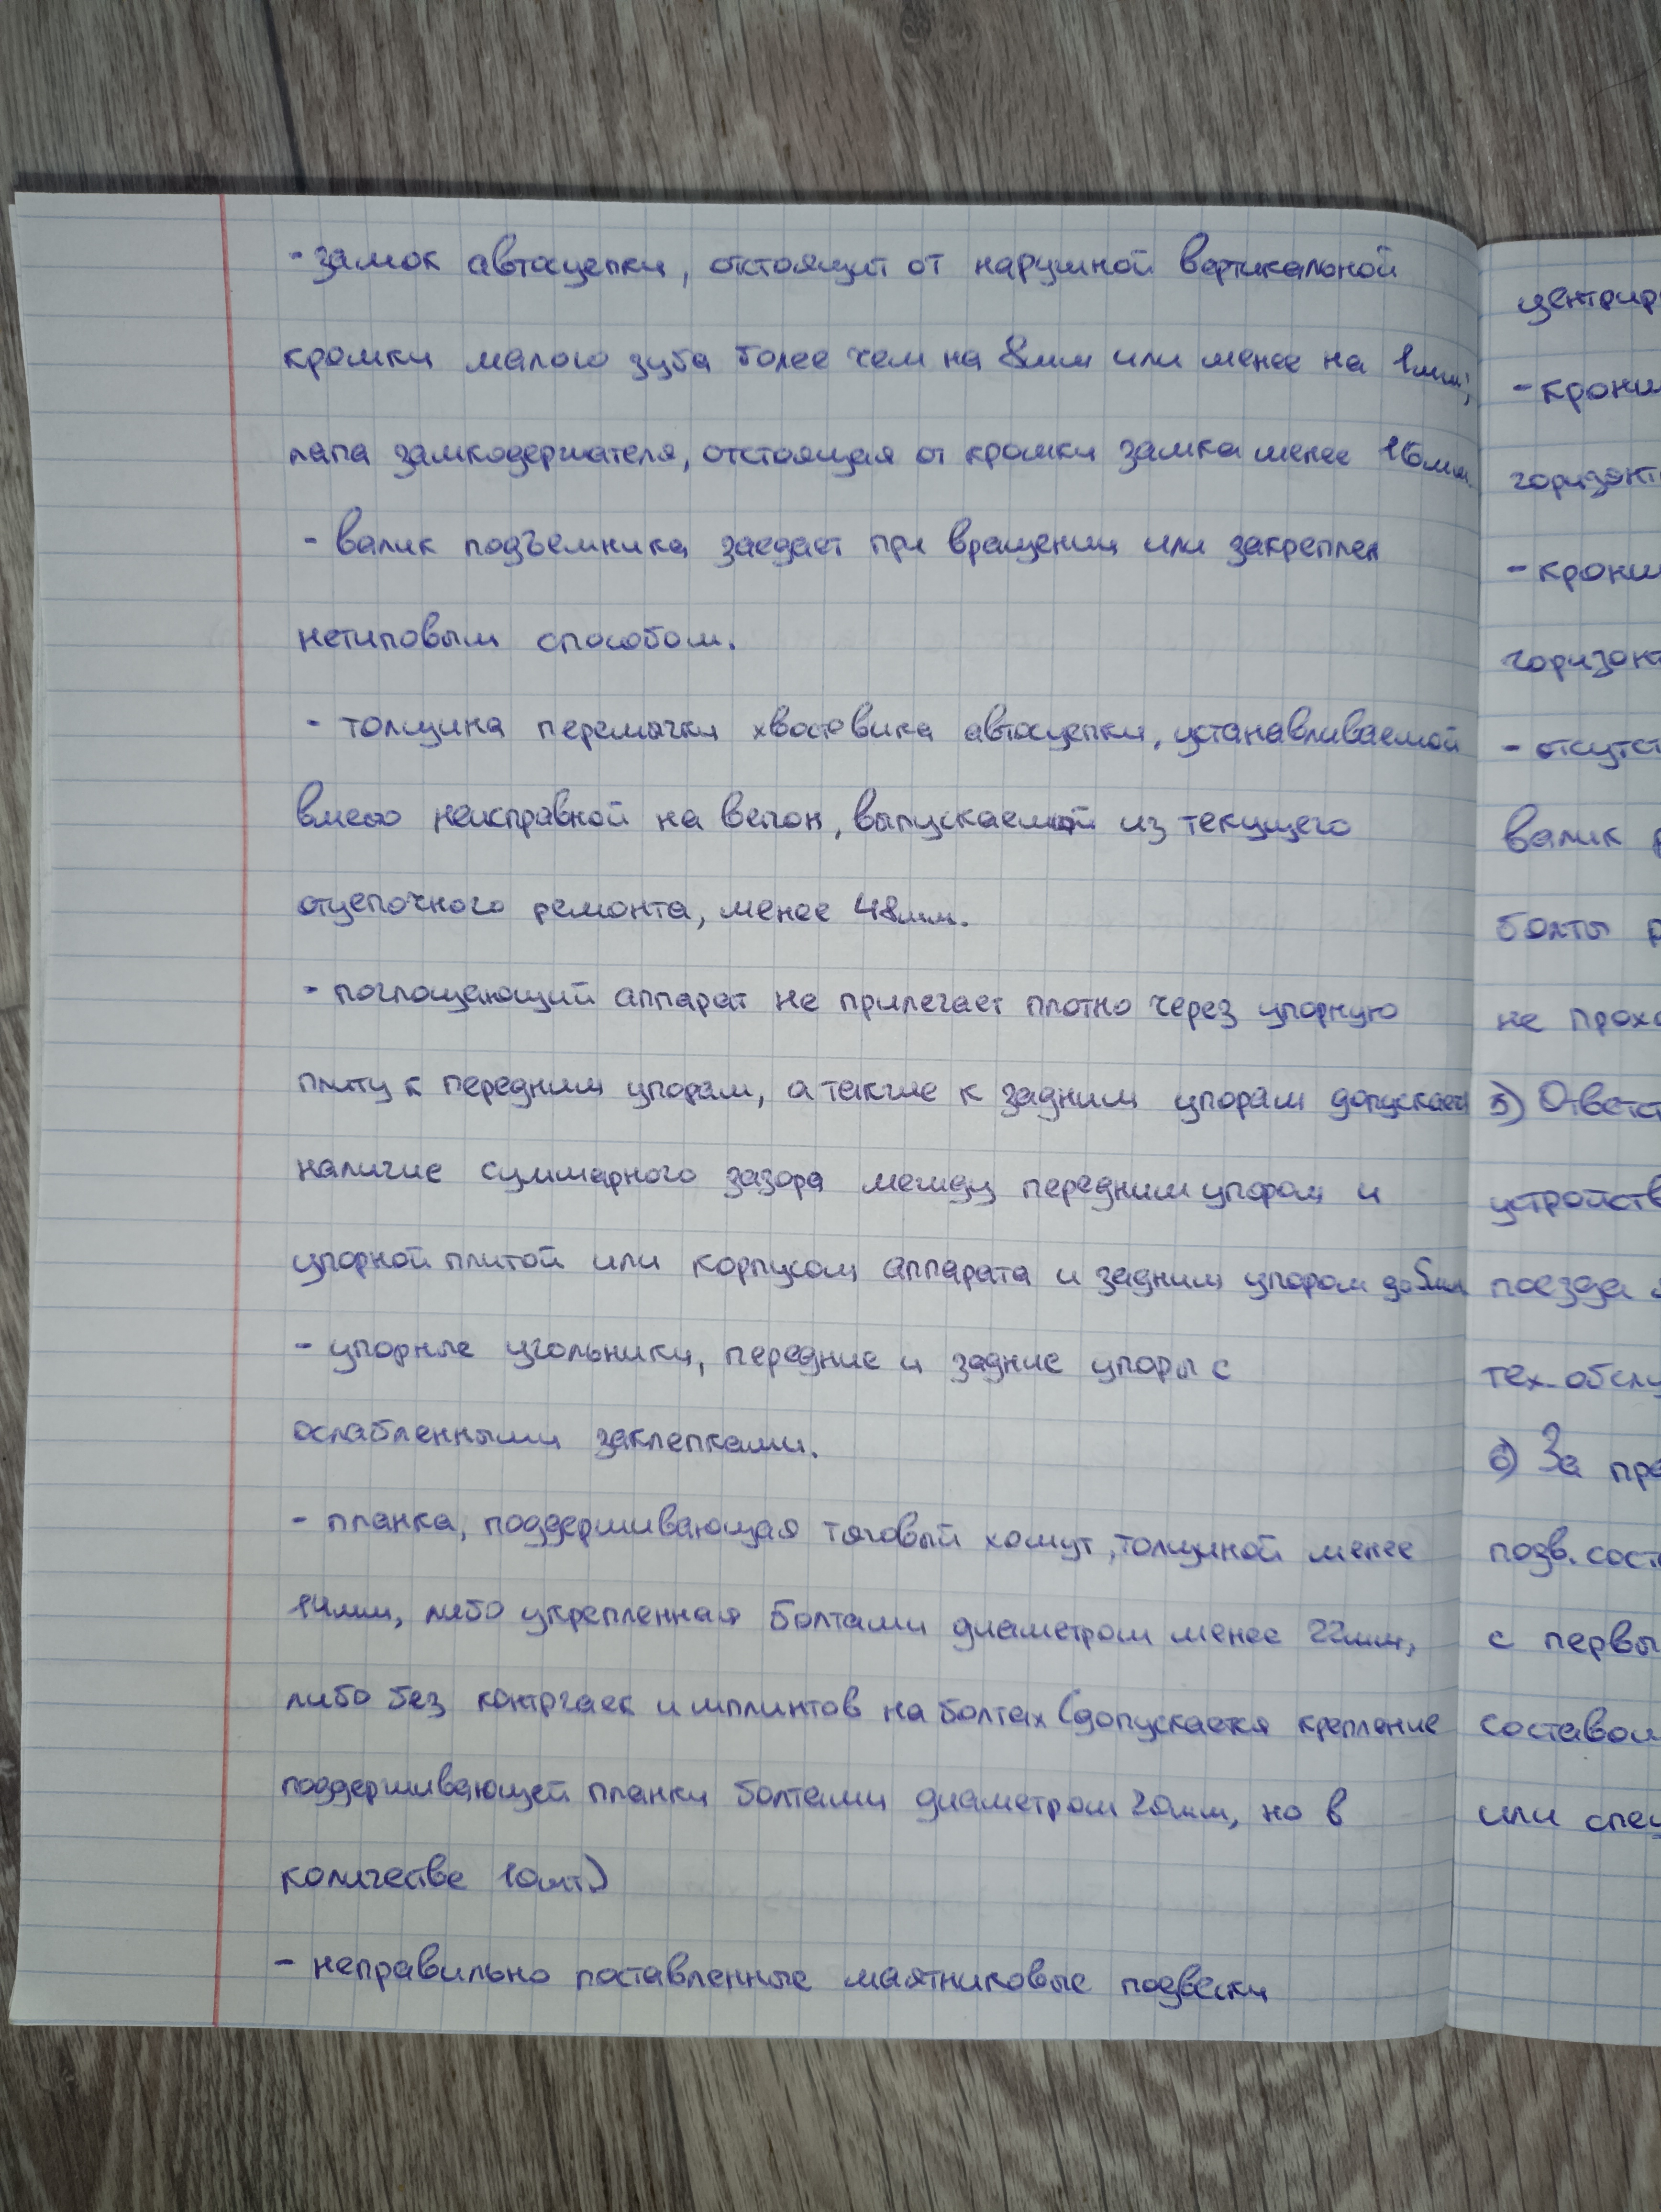 - замок автосцепки, отстоящий от наружной вертикальной
кромки малого зуба более чем на 8мм или менее на 1мм;
лапа замкодержателя, отстоящая от кромки замка менее 16мм.
- валик подъемника заедает при вращении или закреплен
нетиповым способом.
- толщина перемычки хвостовика автосцепки, устанавливаемой
вместо неисправной на вагон, выпускаемой из текущего
отцепочного ремонта, менее 48мм.
- поглощающий аппарат не прилегает плотно через упорную
плиту к передним упорам, а также к задним упорам допускает
наличие суммарного зазора между передним упором и
упорной плитой или корпусом аппарата и задним упором до 5мм
- упорные угольники, передние и задние упоры с
ослабленными заклепками.
- планка, поддерживающая тяговый хомут, толщиной менее
14мм, либо укрепленная болтами диаметром менее 22мм,
либо без контргаек и шплинтов на болтах (допускается крепление
поддерживающей планки болтами диаметром 20мм, но в
количестве 10шт.)
- неправильно поставленные маятниковые подвески
центрир
- крони
горизонт
- крони
горизон
- отсутст
валик р
болты р
не прохо
5) Ответст
устройств
поезда
тех. обслу
6) За пре
позв. сост
с первы
составом
или спец